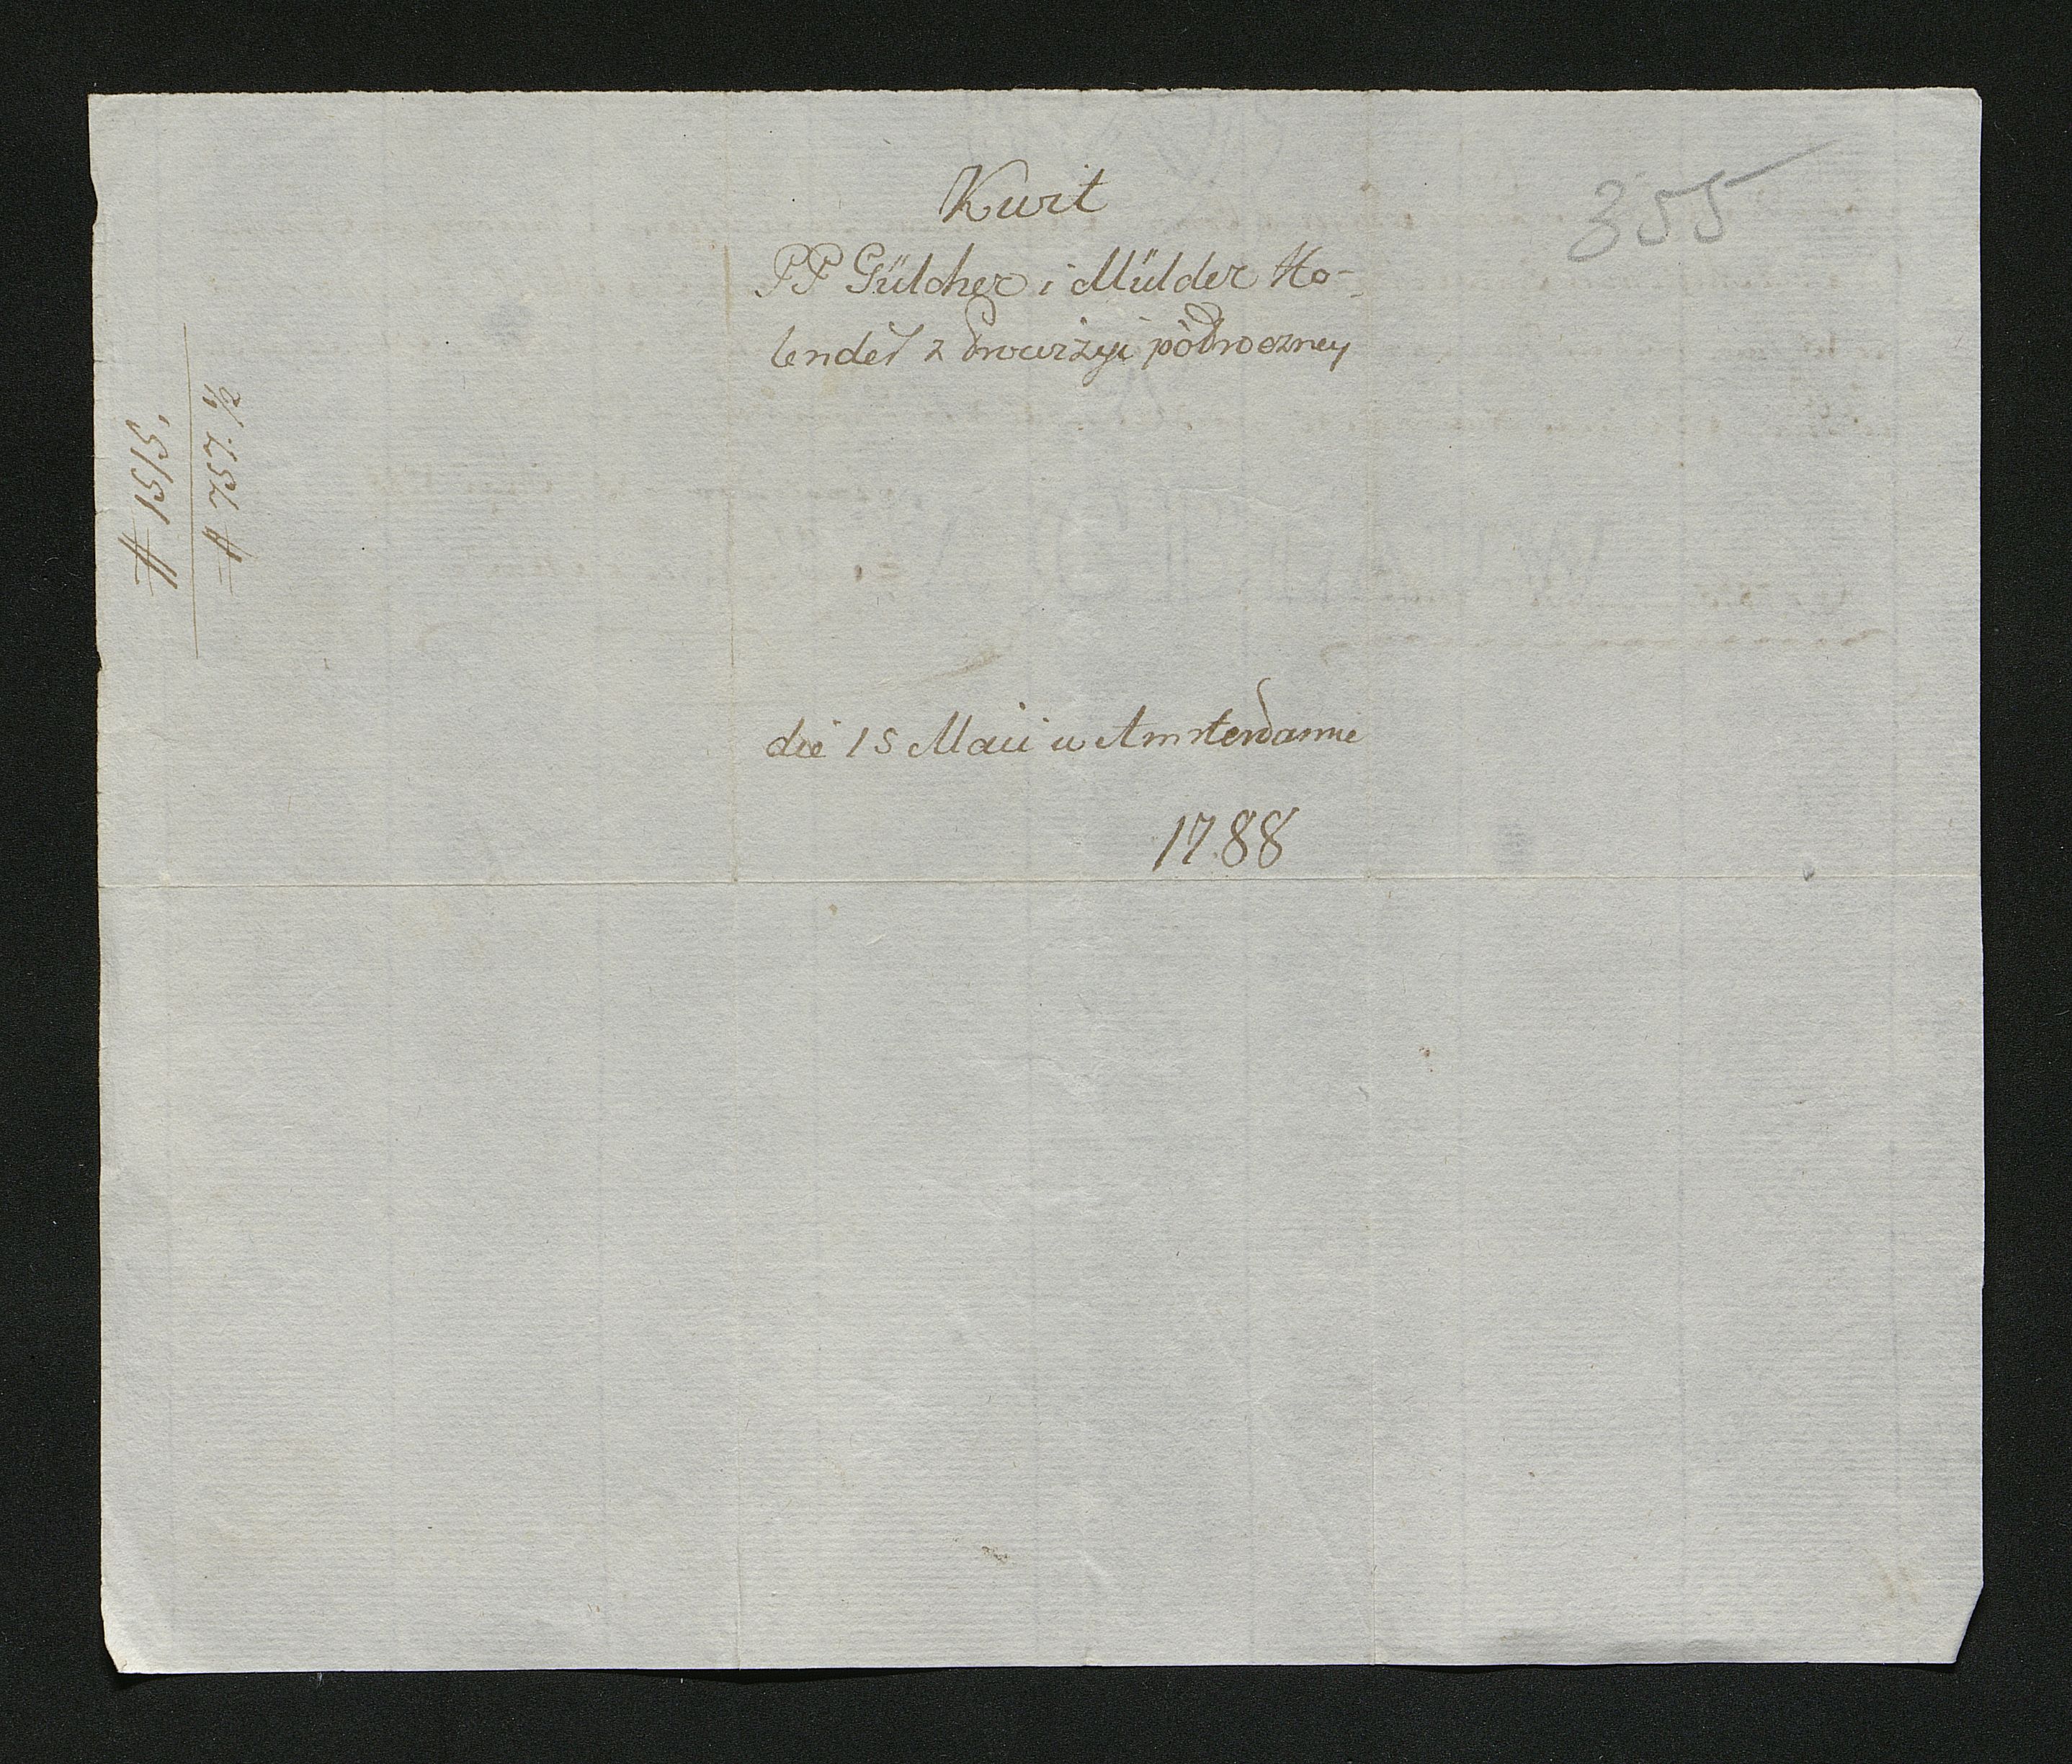 Kwit
PP Gülcher i Mülder Ho-
lendeŕ z Prowizyi półroczney
die 15 Maii w Amsterdamie
1788
355
# 1515,
# 757. ½